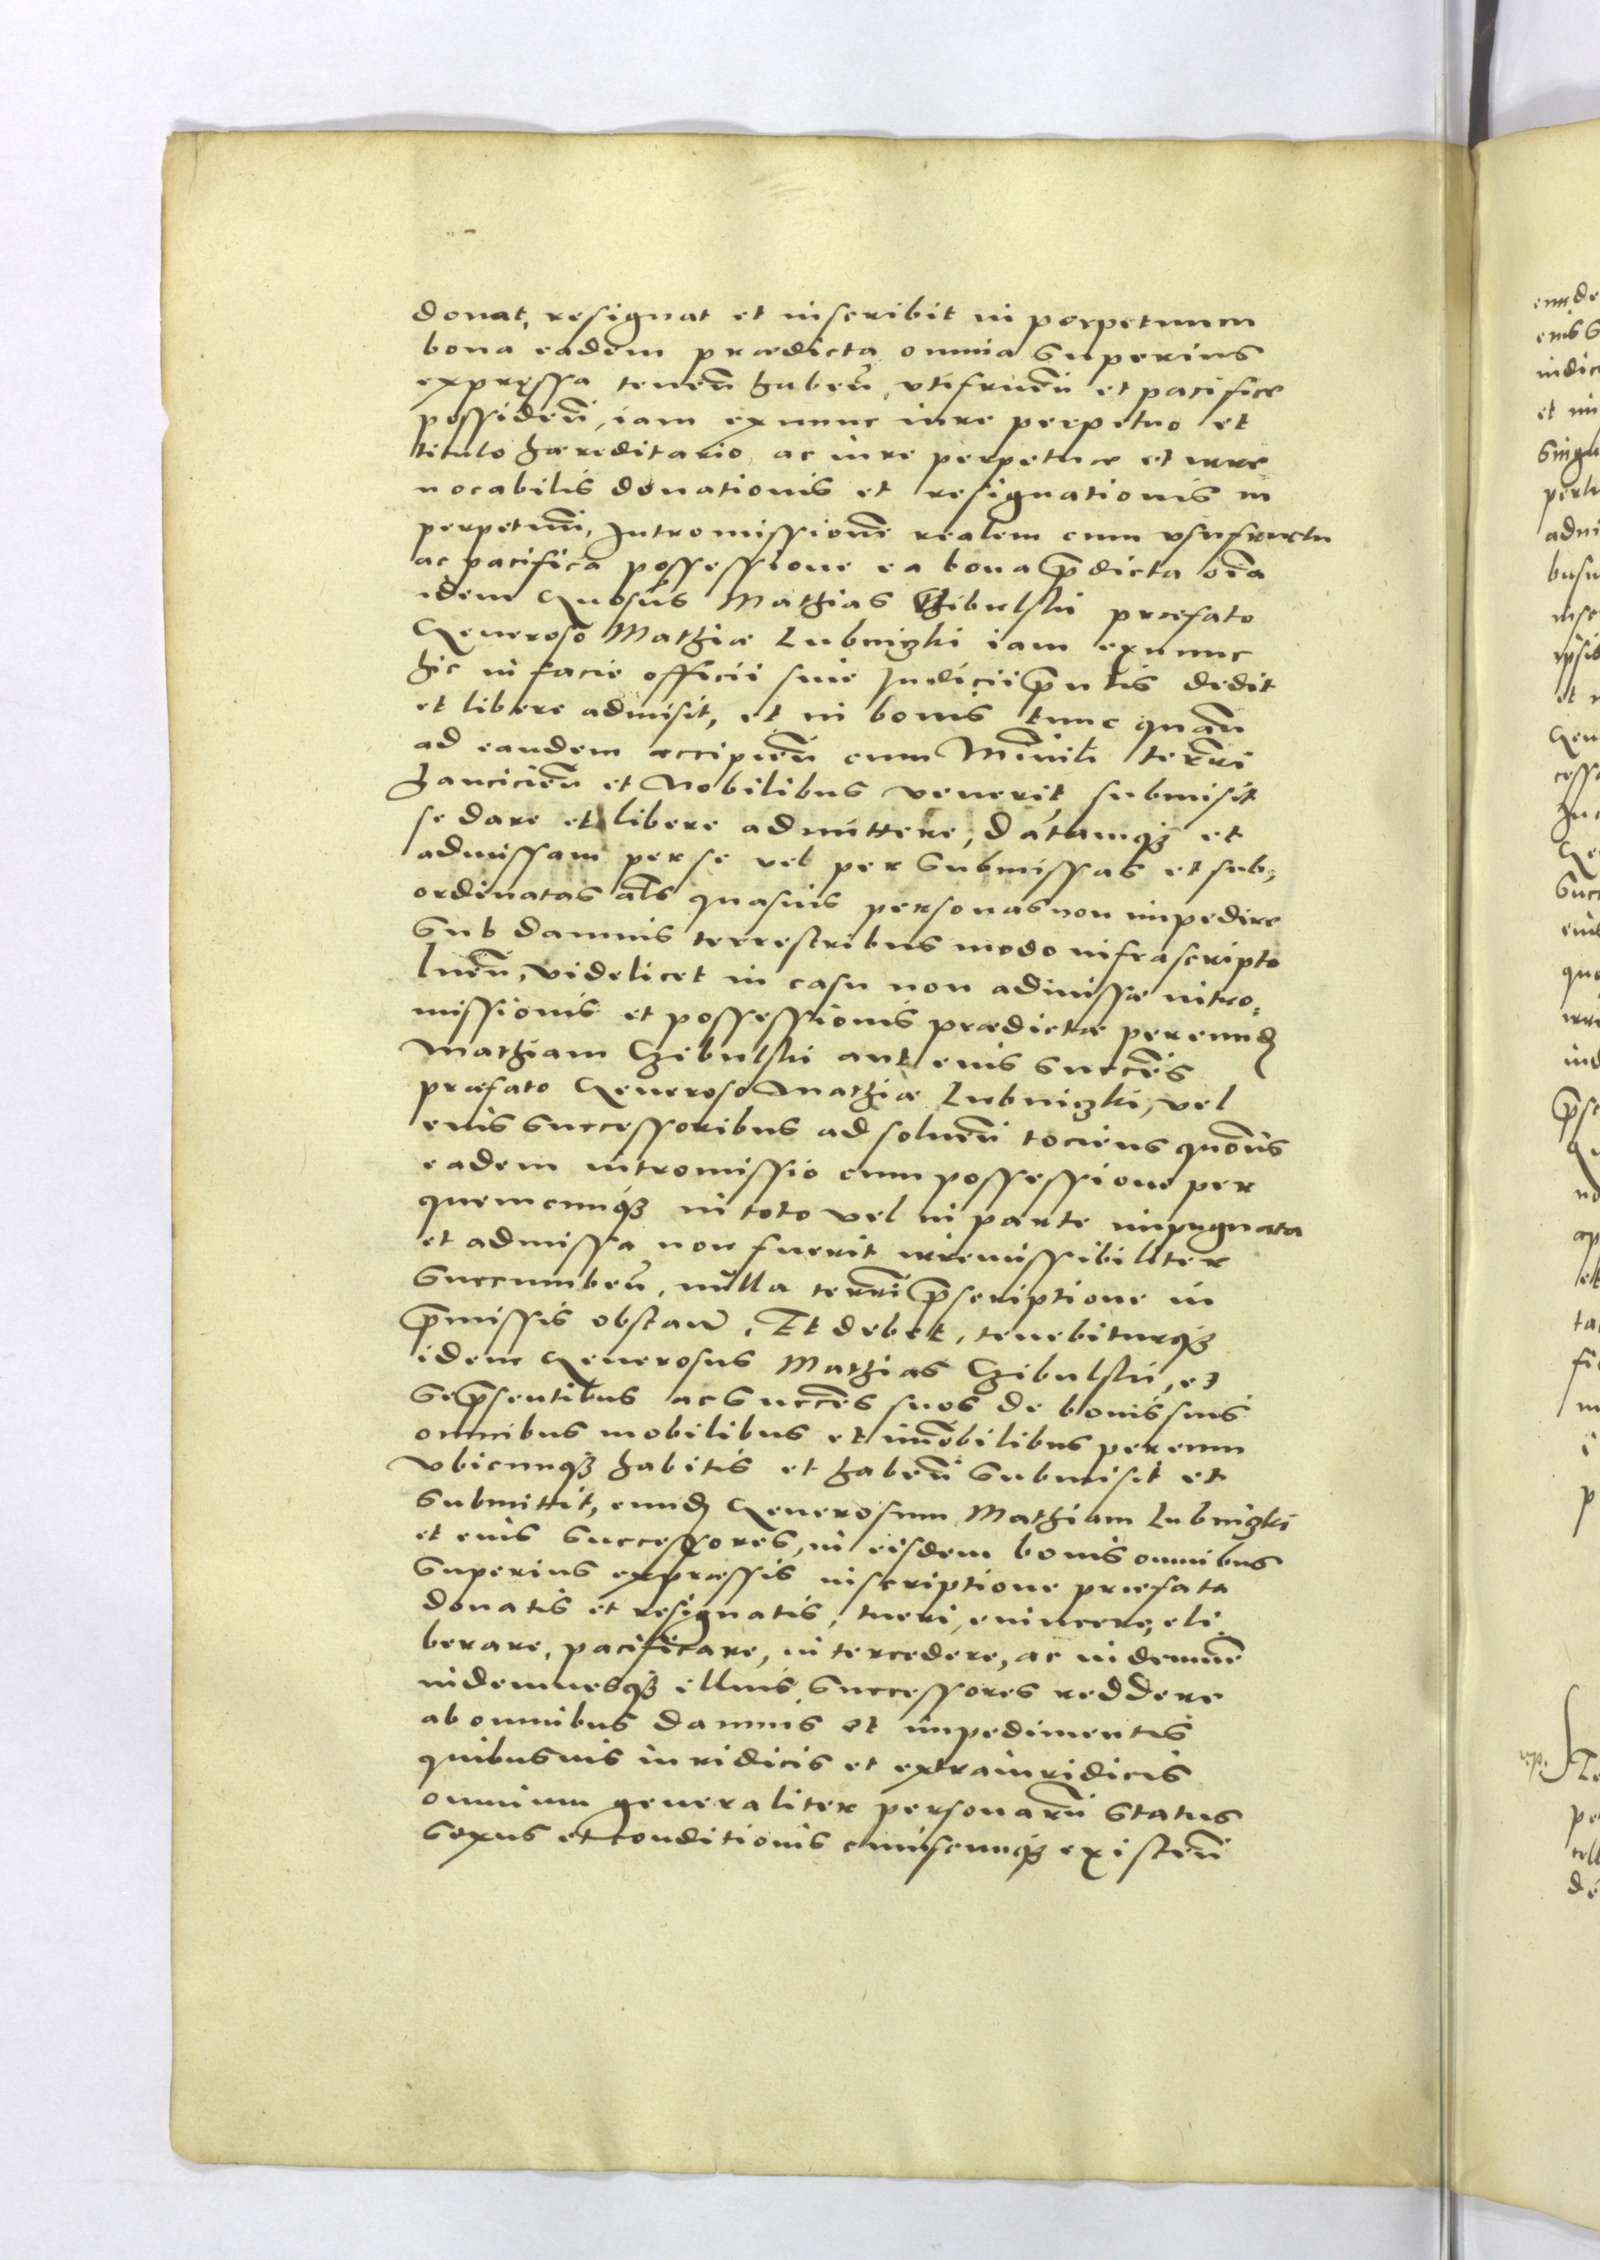 donat, resignat et inscribit in perpetuum
bona eadem prædicta omnia superius
expressa teneñ habeñ, utifrueñ et pacifice
possideñ, iam exnunc iure perpetuo et
titulo hæreditario ac iure perpetuæ et irre
uocabilis donationis et resignationis in
perpetuũ, Intromissionẽ realem cum usufructu
ac pacifica possessione ea bona p̃dicta oĩa
idem Gñosus Mathias Czibulski præfato
Generoso Mathiæ Lubniczki iam exnunc
hic in facie officii siue Iudicii p̃ntis dedit
et libere admisit, et in bonis tunc quañ
ad eandem accipieñ cum Ministĩ terrĩ
Lancicieñ et Nobilibus venerit submisit
se dare et libere admittere, datamqꝫ et
admissam per se vel per submissas et sub,
ordinatas als quasuis personas non impedire
Sub damnis terrestribus modo infrascripto
lueñ, videlicet in casu non admissæ intro,
missionis et possessionis prædictæ per eund
Mathiam Czibulski aut eius succẽs
præfato Generoso Mathiæ Lubniczki, vel
eius successoribus ad solueñ tociens quoĩs
eadem intromissio cum possessione per
quemcunqꝫ in toto vel in parte impugnata
et admissa non fuerit irremissibiliter
succumbeñ, nulla terrĩ p̃scriptione in
p̃missis obstañ. Et debet, tenebiturqꝫ
idem Generosus Mathias Czibulski, et
se p̃sentibus ac succẽs suos de bonis suis
omnibus mobilibus et im̃obilibus per eum
vbicunqꝫ habitis et habeñ submisit et
submittit, eund Generosum Mathiam Lubniczki
et eius successores, in eisdem bonis omnibus
superius expressis inscriptione præfata
donatis et resignatis, tueri, euincere, eli
berare, pacificare, intercedere, ac indemnẽ
indemnesqꝫ illius successores reddere
ab omnibus damnis et impedimentis
quibusuis iuridicis et extraiuridicis
omnium generaliter personarũ status
sexus et conditionis cuiuscunqꝫ existeñ